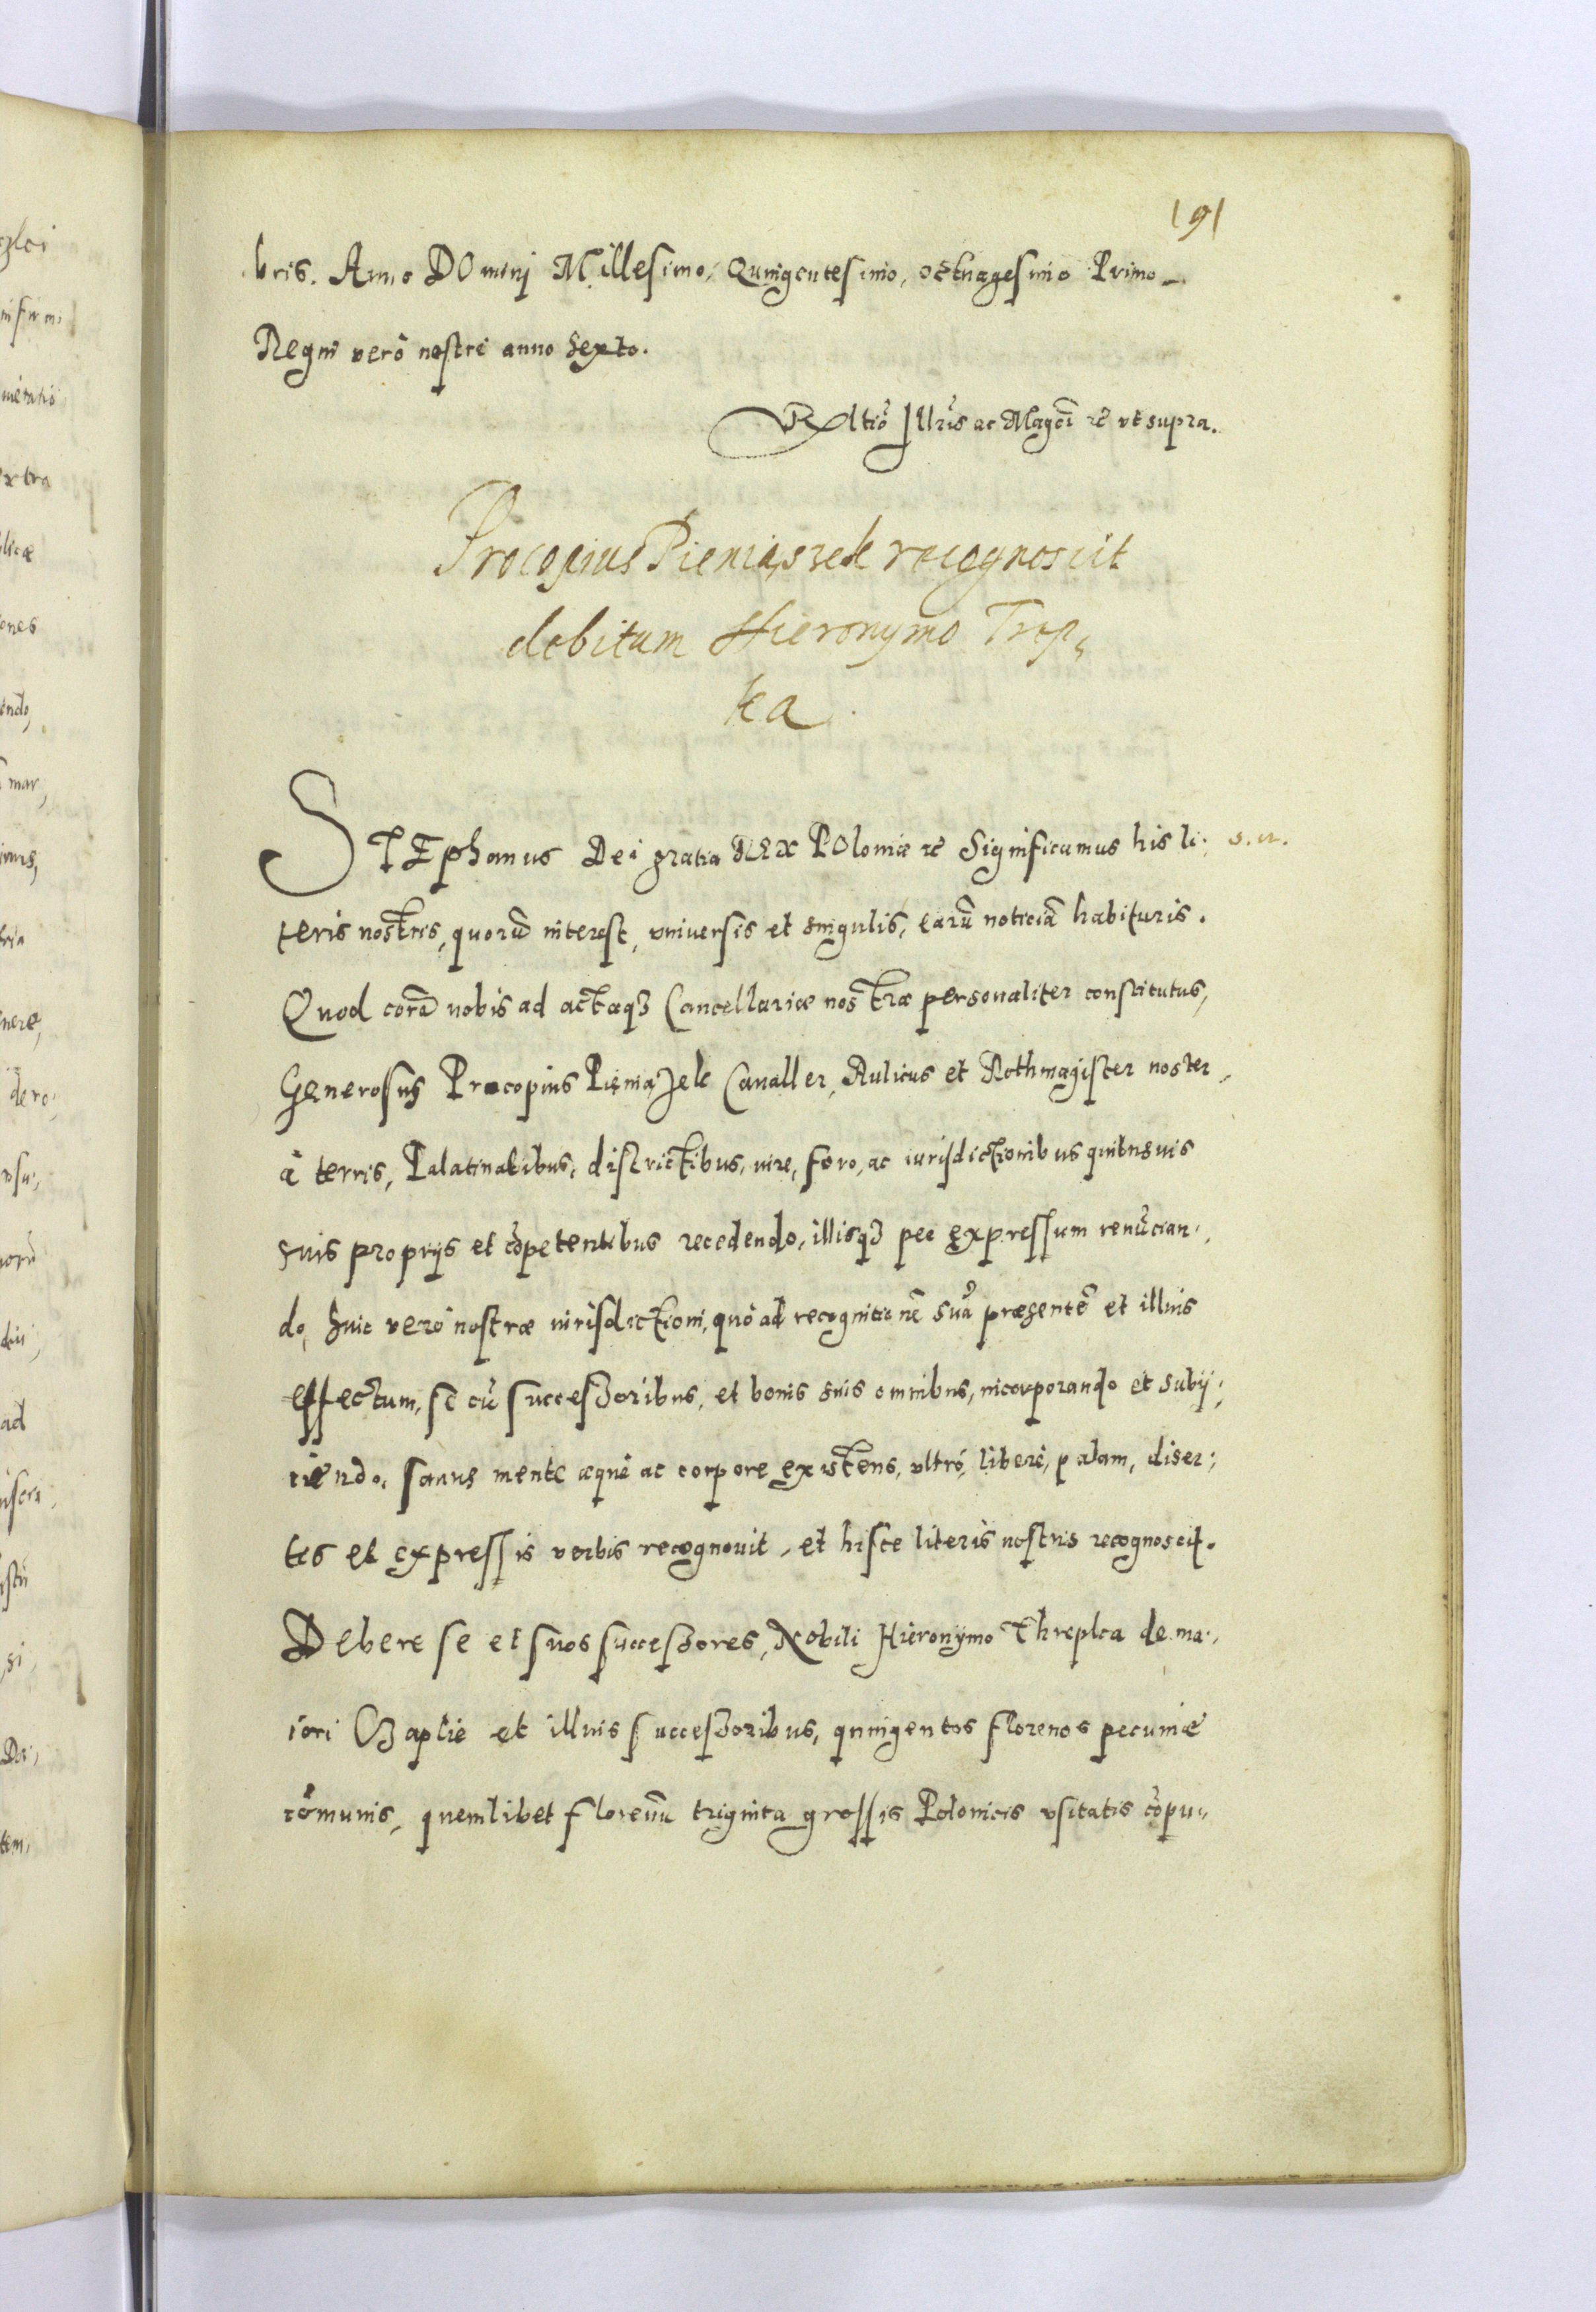 191
bris. Anno DOminj Millesimo, Quingentesimo, octuagesimo Primo
Regni verò nostri anno Sexto.
Rltiõ Illris ac Magci rc vt supra.
Procopius Pieniązek recognoscit
debitum Hieronymo Trep,
ka
STEphanus Dei gratia REX POloniæ rc Significamus his li, s. n.
teris nostris, quorũ interest, vniuersis et singulis, earũ noticiã habituris.
Quod corã nobis ad actaqȝ Cancellariæ nostræ personaliter constitutus,
Generosus Procopius Pieniązek Cauall er, Aulicus et Rothmagister noster,
à terris, Palatinatibus, districtibus, iure, foro, ac iurisdictionibus quibusuis
suis proprijs et cõpetentibus recedendo, illisqȝ per expressum renũcian,
do, huic verò nostræ iurisdictioni, quò ad recognitionẽ suã præsentẽ et illius
effectum, se cũ successoribus, et bonis suis omnibus, incorporando et subij,
ciendo, sanus mente æquè ac corpore existens, vltrò, liberè, palam, diser,
tis et expressis verbis recognouit, et hisce literis nostris recognoscit.
Debere se et suos successores, Nobili Hieronymo Threpka de ma,
iori Czaplie et illius successoribus, quingentos florenos pecuniæ
cõmunis, quemlibet florenũ triginta grossis Polonicis vsitatis cõpu,